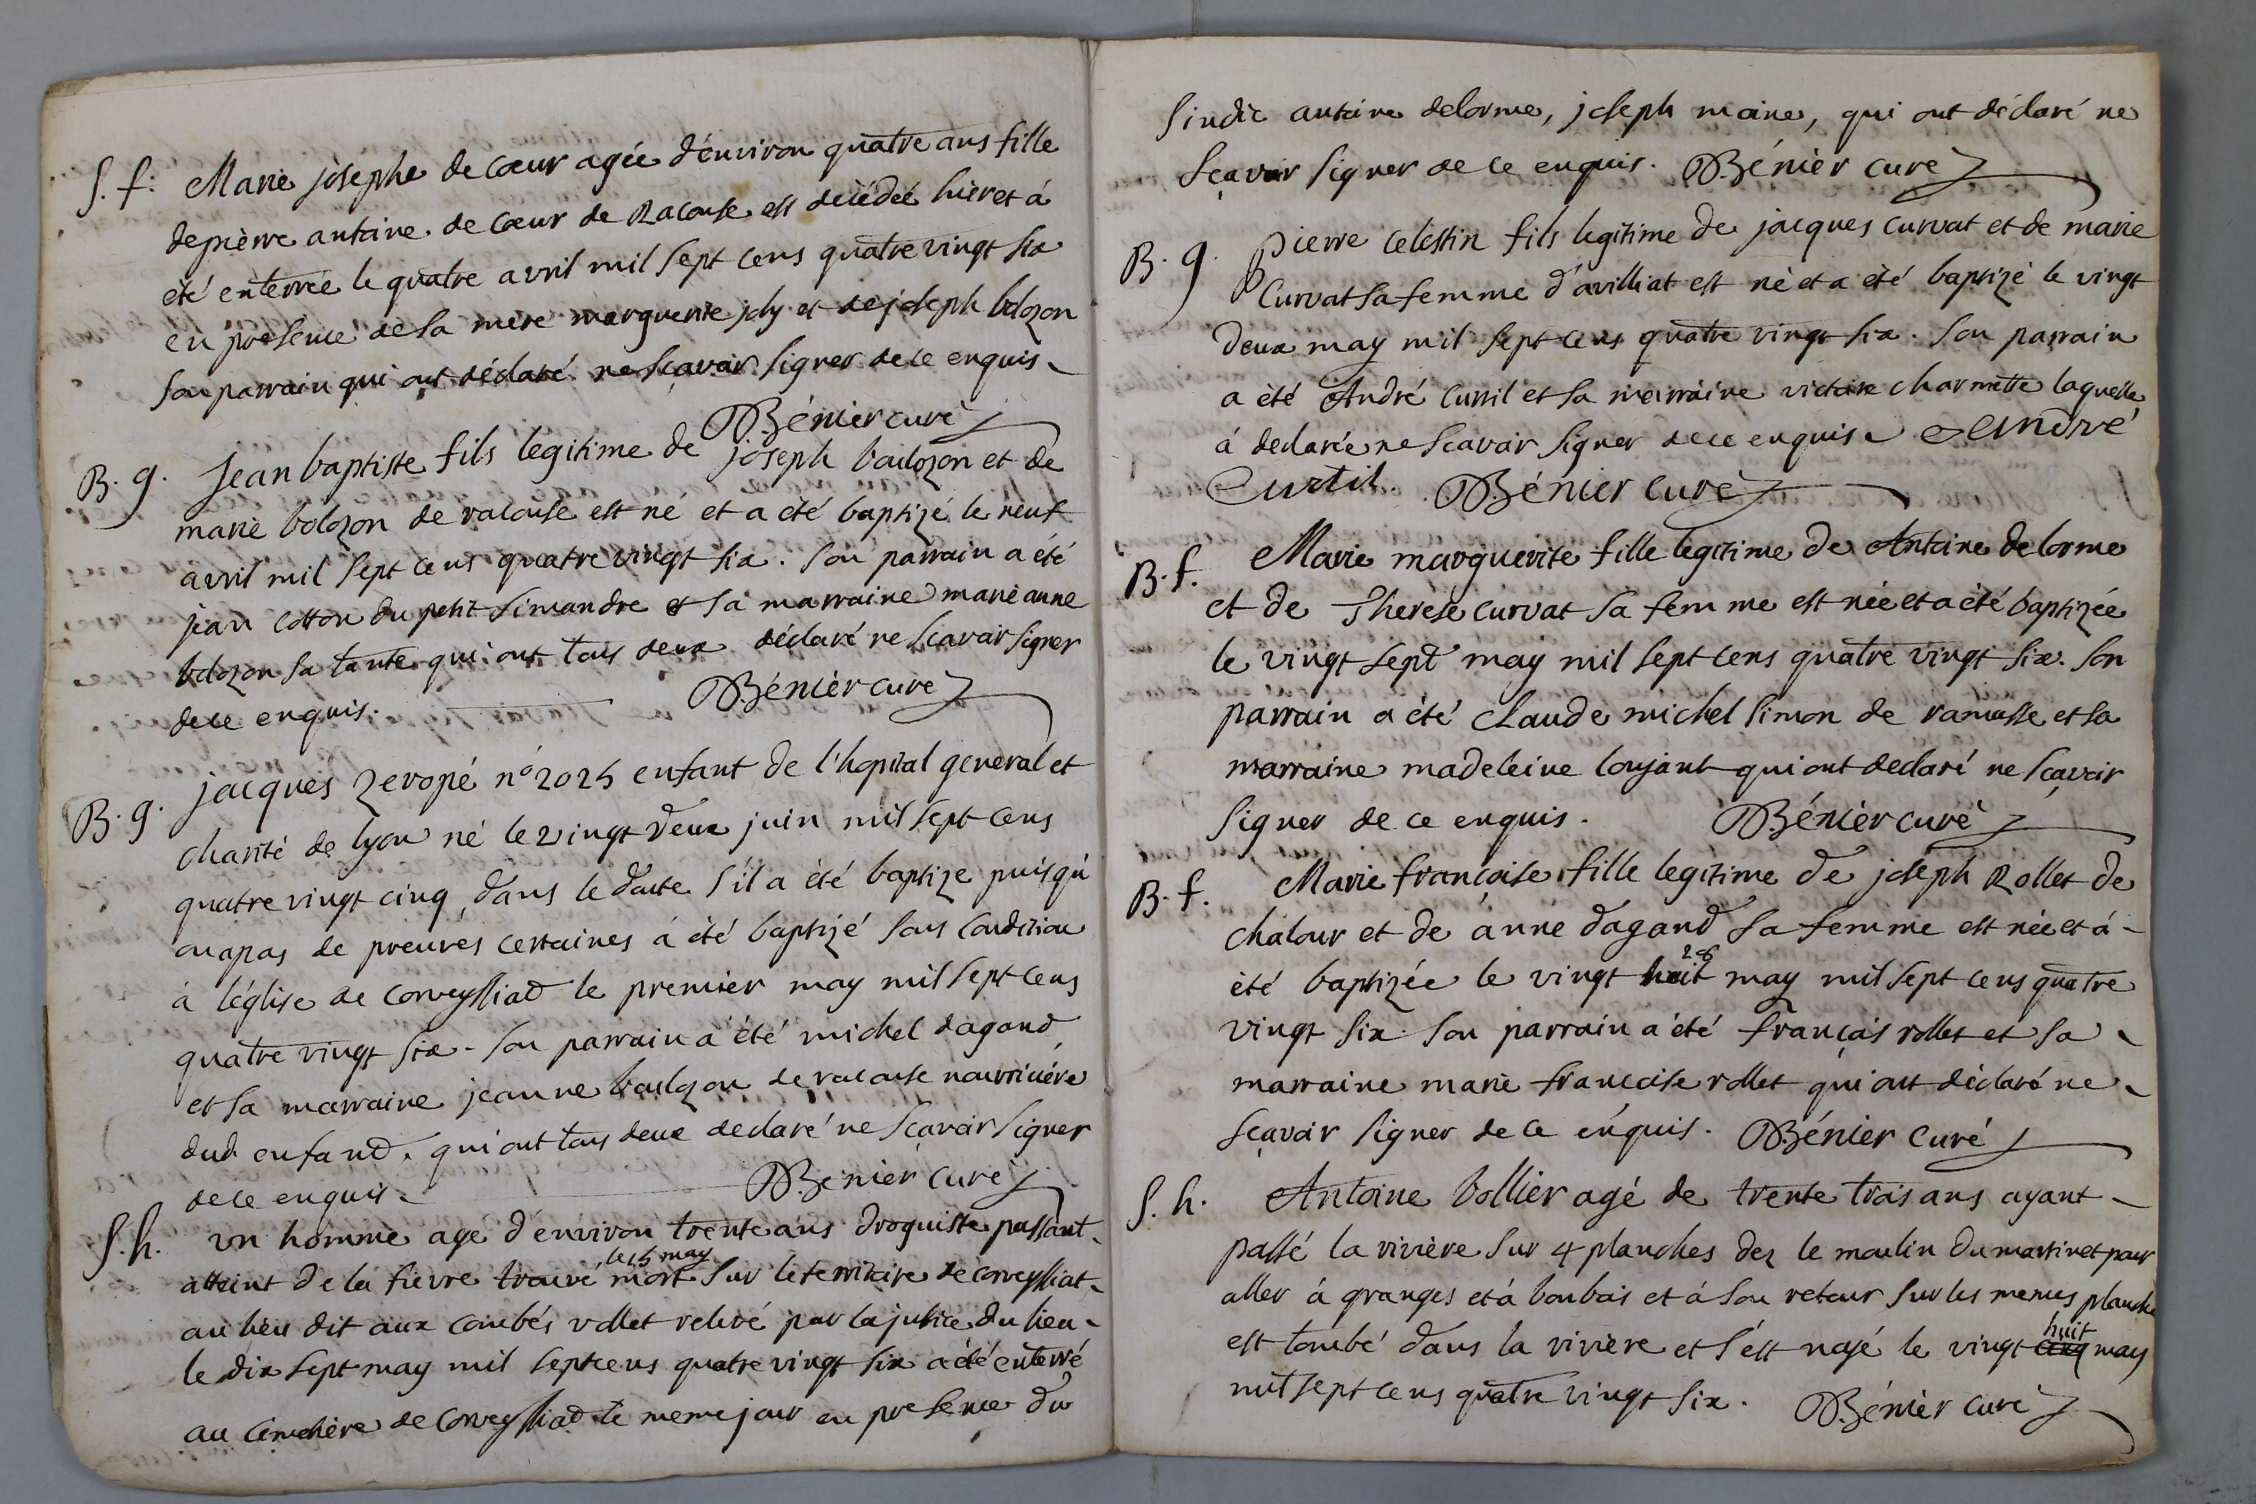 S. f. Marie josephe de cœur agée d'environ quatre ans fille
de pierre antoine de cœur de Racouse est décédée hier et à
été enterrée le quatre avril mil sept cens quatre vingt six
en presence de sa mère marguerite joly et de joseph bolozon
son parrain qui ont déclaré ne scavoir signer de ce enquis
Bénier curé
B. g. Jean baptiste fils legitime de joseph bailozon et de
marie bolozon de racouse est né et a été baptizé le neuf
avril mil sept cens quatre vingt six. son parrain a été
jean cotton du petit simandre et sa marraine marie anne
bolozon sa tante qui ont tous deux déclaré ne scavoir signer
de ce enquis. Bénier curé
B. g. jacques zeropé n° 2025 enfant de l'hopital general et
charité de lyon né le vingt deux juin mil sept cens
quatre vingt cinq, dans le doute s'il a été baptize puisqu'
on a pas de preuves certaines a été baptizé sous condition
à l'église de corveyssiad le premier may mil sept cens
quatre vingt six. son parrain a été michel dagand
et sa marraine jeanne bailozon de racouse nourricière
dud. enfand. qui ont tous deux declaré ne scavoir signer
de ce enquis Bénier curé
S. h. un homme agé d'environ trente ans droguiste passant
le 15 may
atteint de la fievre trouvé mort sur le territoire de corveyssiat
au lieu dit aux combés vollet relevé par la justice du lieu
le dix sept may mil sept cens quatre vingt six a été enterré
au cimetière de corveyssiad le meme jour en presence du
sindic antoine delorme, joseph moine, qui ont déclaré ne
sçavoir signer de ce enquis. Bénier curé
B. g. pierre celestin fils legitime de jacques curvat et de marie
Curvat sa femme d'avilliat est né et a été baptizé le vingt
deux may mil sept cens quatre vingt six. son parrain
a été André Curtil et sa marraine victoire charmette laquelle
à declarée ne scavoir signer de ce enquise André
Curtil. Bénier curé
B. f. Marie marguerite fille legitime de Antoine delorme
et de Therèse curvat sa femme est née et a été baptizée
le vingt sept may mil sept cens quatre vingt six. son
parrain a été claude michel simon de ramasse et sa
marraine madeleine loujant qui ont declaré ne sçavoir
signer de ce enquis. Bénier curé
B. f. Marie françoise fille legitime de joseph Rollet de
chalour et de anne dagand sa femme est née et à
28
été baptizée le vingt huit may mil sept cens quatre
vingt six son parrain a été françois rollet et sa
marraine marie francoise rollet qui ont déclaré ne
sçavoir signer de ce enquis. Bénier curé
S. h. Antoine bollier agé de trente trois ans ayant
passé la rivière sur 4 planches dez le moulin du martinet pour
aller à granges et à bonbois et à son retour sur les memes planche
huit
est tombé dans la rivière et s'est noyé le vingt cinq may
mil sept cens quatre vingt six. Bénier curé